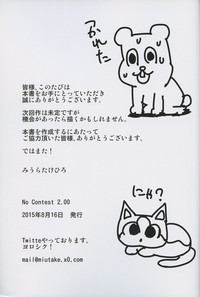 おれた
皆様、このたびは
本書をお手にとっていただき
誠にありがとうございます。
次回作は未定ですが
機会があったら描くかもしれません。
本書を作成するにあたって
ご協力頂いた皆様、ありがとうございます。
ではまた！
みうらたけひろ
No Contest 2.00
2015年8月16日　発行
にゃ？
Twitteやっております。
ヨロシク！
mail@miutake.x0.com